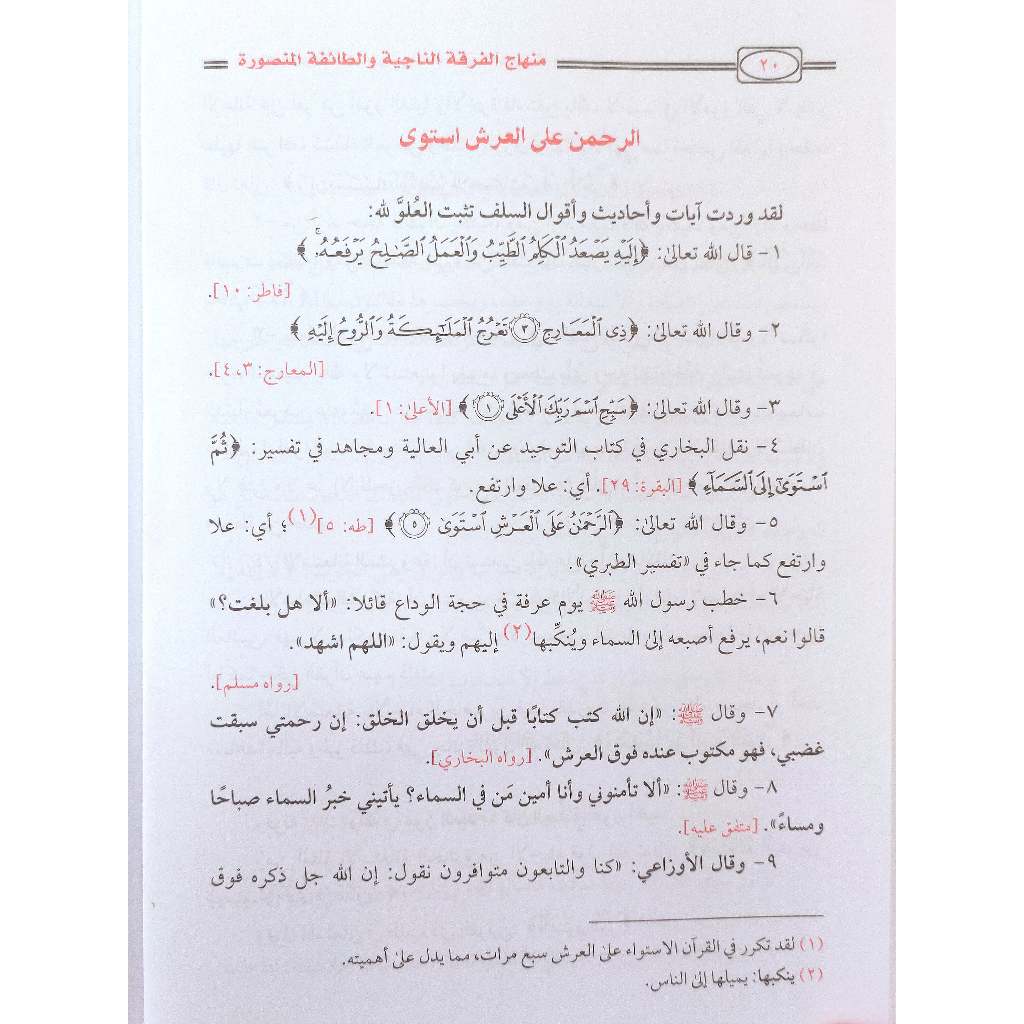 ٢٠ منهاج الفرقة الناجية والطائفة المنصورة
الرحمن على العرش استوى
لقد وردت آيات وأحاديث وأقوال السلف تثبت العُلوَّ لله:
١- قال الله تعالى: ﴿إِلَيْهِ يَصْعَدُ ٱلْكَلِمُ ٱلطَّيِّبُ وَٱلْعَمَلُ ٱلصَّـٰلِحُ يَرْفَعُهُۥۚ﴾
[فاطر: ١٠].
٢- وقال الله تعالى: ﴿ذِى ٱلْمَعَارِجِ ۝٣ تَعْرُجُ ٱلْمَلَـٰٓئِكَةُ وَٱلرُّوحُ إِلَيْهِ﴾
[المعارج: ٣، ٤].
٣- وقال الله تعالى: ﴿سَبِّحِ ٱسْمَ رَبِّكَ ٱلْأَعْلَى ۝١﴾ [الأعلى: ١].
٤- نقل البخاري في كتاب التوحيد عن أبي العالية ومجاهد في تفسير: ﴿ثُمَّ
ٱسْتَوَىٰٓ إِلَى ٱلسَّمَآءِ﴾ [البقرة: ٢٩]. أي: علا وارتفع.
٥- وقال الله تعالى: ﴿ٱلرَّحْمَـٰنُ عَلَى ٱلْعَرْشِ ٱسْتَوَىٰ ۝٥﴾ [طه: ٥](١)؛ أي: علا
وارتفع كما جاء في «تفسير الطبري».
٦- خطب رسول الله ﷺ يوم عرفة في حجة الوداع قائلا: «ألا هل بلغت؟»
قالوا نعم، يرفع أصبعه إلى السماء ويُنكِّبها(٢) إليهم ويقول: «اللهم اشهد».
[رواه مسلم].
٧- وقال ﷺ: «إن الله كتب كتابًا قبل أن يخلق الخلق: إن رحمتي سبقت
غضبي، فهو مكتوب عنده فوق العرش». [رواه البخاري].
٨- وقال ﷺ: «ألا تأمنوني وأنا أمين مَن في السماء؟ يأتيني خبرُ السماء صباحًا
ومساءً». [متفق عليه].
٩- وقال الأوزاعي: «كنا والتابعون متوافرون نقول: إن الله جل ذكره فوق
(١) لقد تكرر في القرآن الاستواء على العرش سبع مرات، مما يدل على أهميته.
(٢) ينكبها: يميلها إلى الناس.